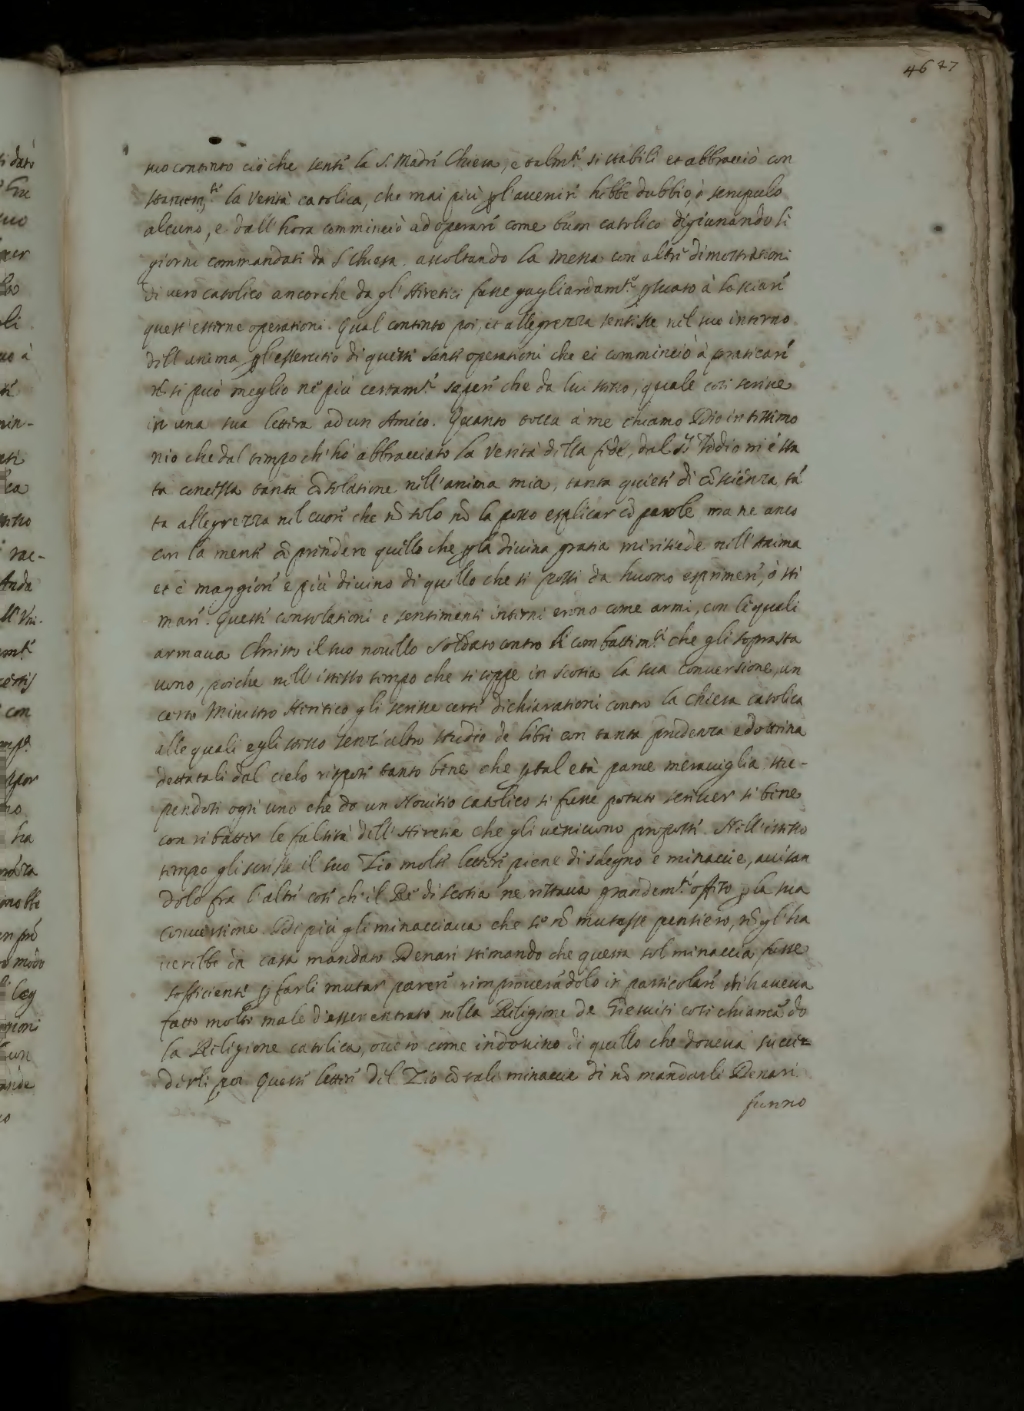 46 27
suo contento ciò che sente la S. Madre Chiesa, e talmte si stabili et abbracciò con
la Verità catolica, che mai più p l'avenire hebbe dubbio, ò scrupulo
alcuno, e dall'hora comminciò ad operare come buon catolico digiunando li
giorni commandati da S. Chiesa, ascoltando la messa con altre dimostrationi
di vero catolico ancorche da gl'Heretici fusse gagliardamte à lasciare
quest'esterne operationi. Qual contento poi, et allegrezza sentisse nel suo interno
dell'anima p l'essercitio di queste sante operationi che ei comminciò à praticare
nõ si può meglio ne più certamte sapere che da lui stesso, quale così scrive
in una sua lettera ad un Amico. Quanto tocca à me chiamo Dio in testimo
nio che dal tempo ch'hò abbracciato la Verità della fede, dal Sr Iddio mi è sta
ta concessa tanta cõsolatione nell'anima mia, tanta quiete di cõscienza, tã
ta allegrezza nel cuore che nõ solo nõ la posso esplicar cõ parole, ma ne anco
con la mente cõprendere quello che p la divina gratia mi risiede nell'anima
et è maggiore e più divino di quello che si possi da huomo esprimere, ò sti
mare. Queste consolationi e sentimenti interni erono come armi, con le quali
armava Christo il suo novello soldato contro li combattimti che gli soprasta
vono, poiche nell'istesso tempo che si seppe in Scotia la sua conversione, un
certo Ministro Heretico gli scrisse certe dichiarationi contro la chiesa catolica
alle quali egli stesso senz'altro studio de libri con tanta prudenza e dottrina
dettatali dal cielo rispose tanto bene che p tal età parve meraviglia stu-
pendosi ogn'uno che da un Novitio catolico si fusse potuto scriver si bene
con ribatter le falsità dell'Heresia che gli venivono proposte. Nell'istesso
tempo gli scrisse il suo Zio molte lettere piene di sdegno e minaccie, avisan
dolo fra l'altre cose ch'il Re di Scotia ne restava grandemte offeso p la sua
conversione. Di più gli minacciava che se nõ mutasse pensiero, nõ gl'ha
verebbe da casa mandato Denari stimando che questa sol minaccia fusse
sofficiente p farli mutar parere rimproverãdolo in particolare ch'haveva
fatto molto male d'esser entrato nella Religione de Giesuiti così chiamãdo
la Religione catolica, overo come indovino di quello che doveva succe=
derli poi. Queste lettere del Zio cõ tale minaccia di nõ mandarle Denari
furono